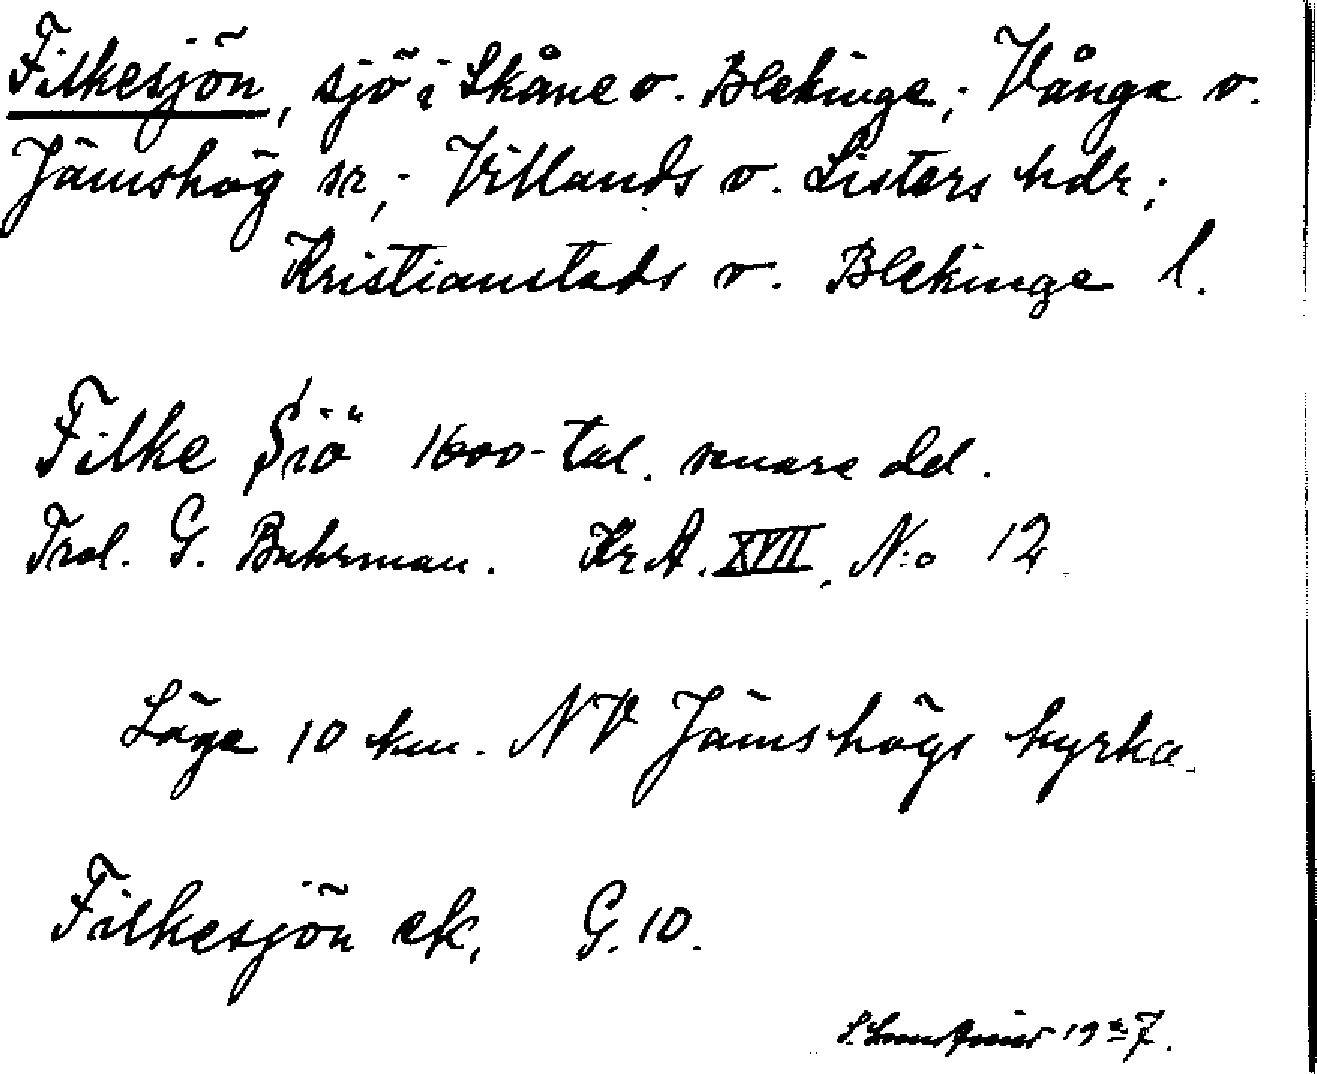 Filkesjön, sjö i Skåne o. Blekinge; Vånga o.
Jämshög sr; Villands o. Listers hdr;
Kristianstads o. Blekinge l.
Filke Siö 1600-tal. senare del.
Trol. G. Buhrman. Kr A. XVII, N:o 12
Läge 10 km. NV Jämshögs kyrka.
Filkesjön ek. G. 10.